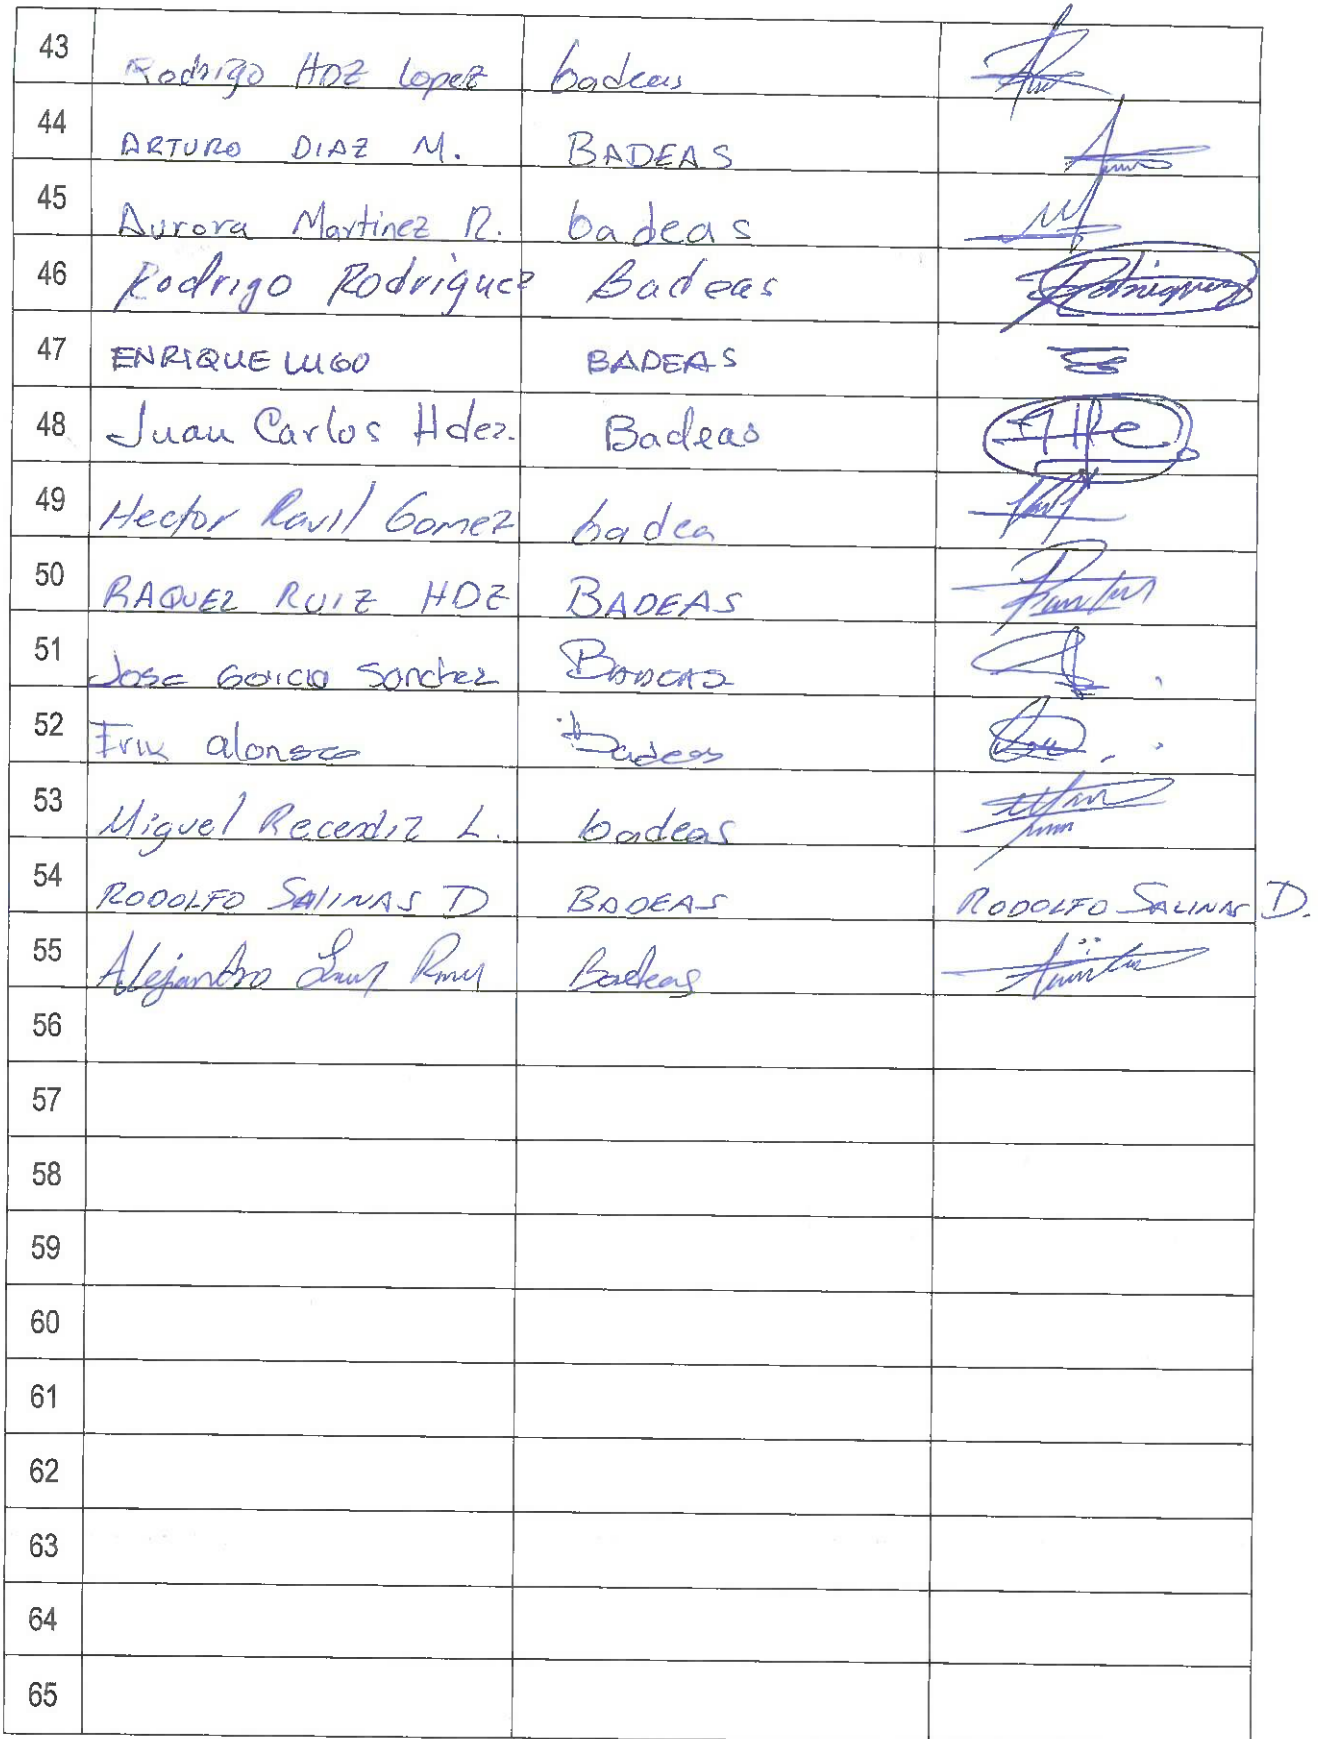 43 Rodrigo HDZ Lopez badeas
44 ARTURO DIAZ M. BADEAS
45 Aurora Martinez R. badeas
46 Rodrigo Rodriguez Badeas Rodriguez
47 ENRIQUE LUGO BADEAS
48 Juan Carlos Hdez. Badeas
49 Hector Raul Gomez badea
50 RAQUEL RUIZ HDZ BADEAS
51 Jose Garcia Sanchez BADEAS
52 Erik alonso Badeas
53 Miguel Recendiz L. badeas
54 RODOLFO SALINAS D BADEAS RODOLFO SALINAS D.
55 Alejandro Badeas
56
57
58
59
60
61
62
63
64
65